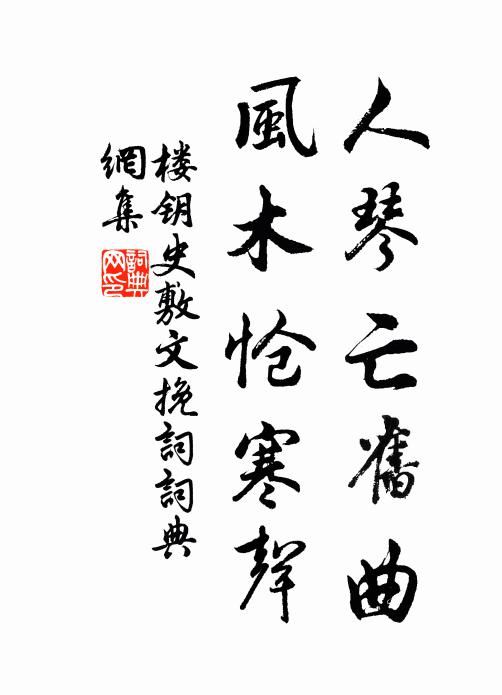 人琴亡舊曲
風木愴寒聲
楼钥史敷文挽詞詞典
網集
詞典網印